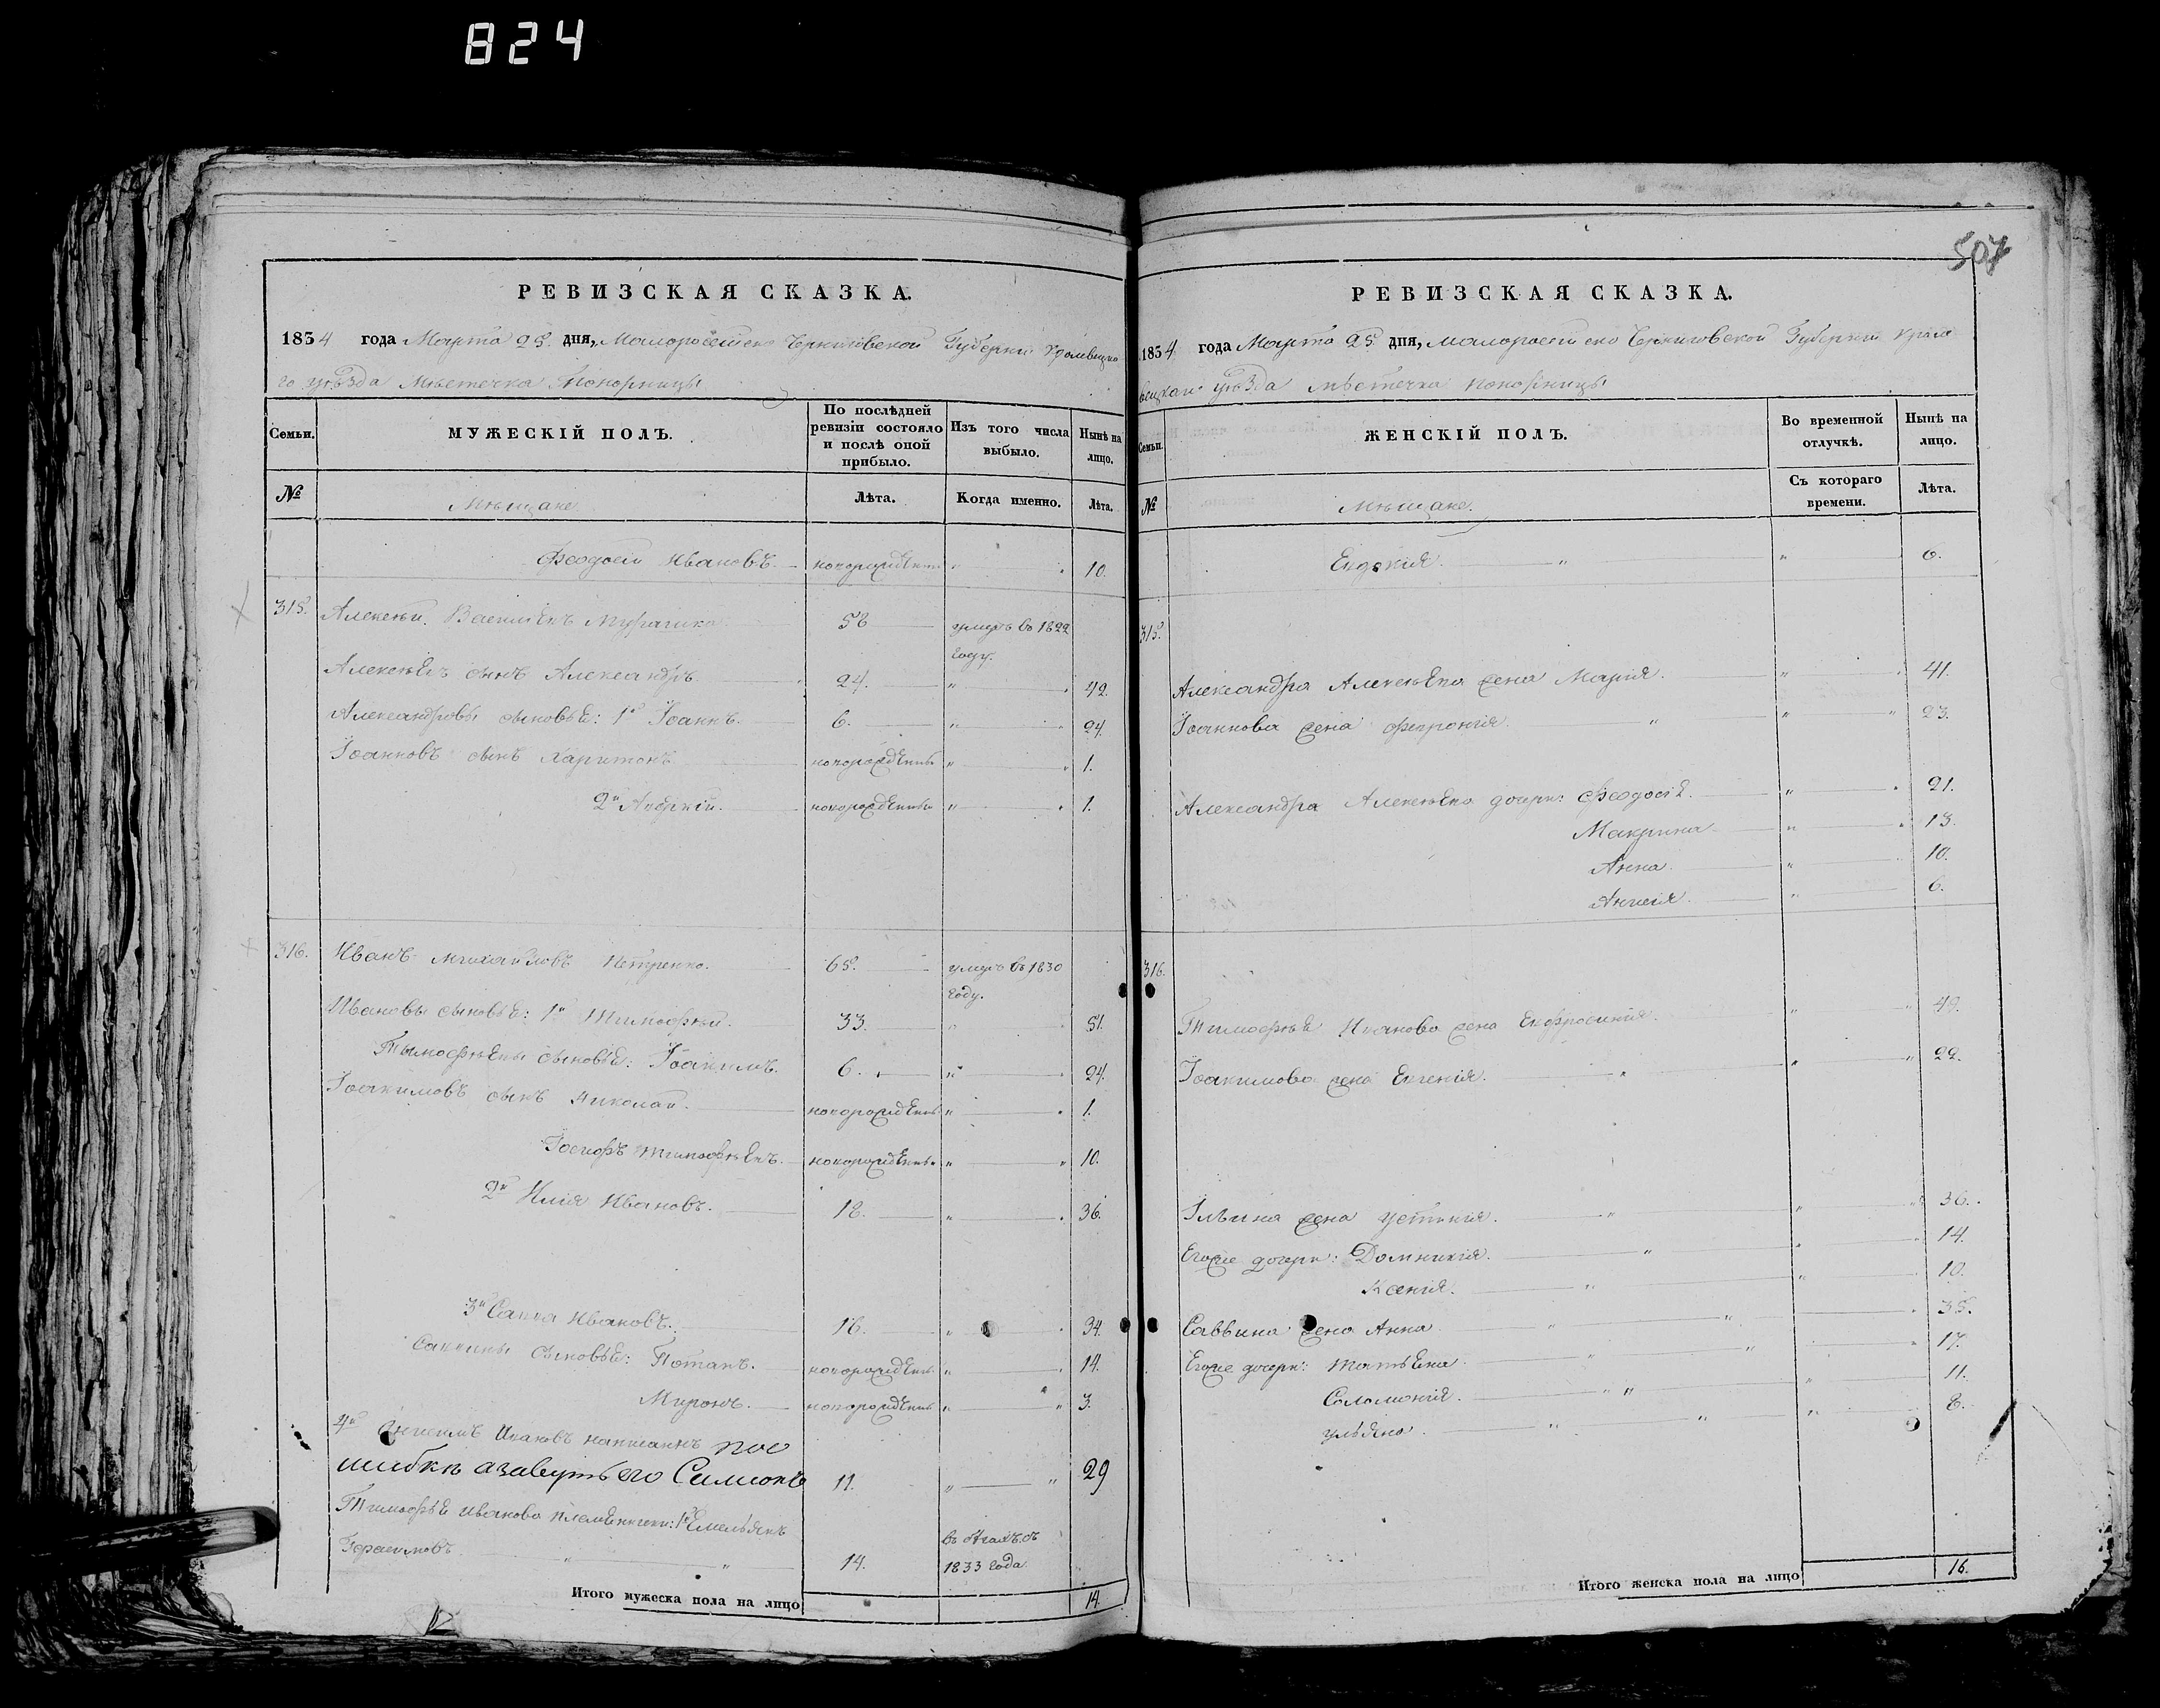 824
507
РЕВИЗСКАЯ СКАЗКА.
1854 года Марта 25 дня, Малоросийско Черниговской Губернии Кролевецка
го уезда Местечка Понорницы
Семьи.
МУЖЕСКІЙ ПОЛЪ.
По послѣдней ревизіи состояло и послѣ оной прибыло.
Изъ того числа выбыло.
Нынѣ на лицо.
№
Мѣщане
Лѣта.
Когда именно.
Лѣта.
Феодосій Ивановъ. новорожденъ " 10.
315. Алексѣй Василіевъ 56 умеръ въ 1822
году.
Алексѣевъ сынъ Александръ 24. " 42.
Александровы сыновье: 1й Іоаннъ. 6. " 24.
Іоанновъ сынъ Харитонъ новорожденный " 1.
2й новорожденный " 1.
316. Иванъ Михайловъ Петренко. 65. умеръ въ 1830
году.
Ивановы сыновье: 1й Тимофѣй. 33. " 51.
Тымофѣевы сыновье: Іоакимъ. 6. " 24.
Іоакимовъ сынъ Николай. новорожденный " 1.
Іосифъ Тимофѣевъ. новорожденный " 10.
2й Илія Ивановъ. 18. " 36.
3й Савва Ивановъ. 16. " 34.
Саввины сыновье: Потапъ. новорожденъ " 14.
Миронъ. новорожденный " 3.
4й Ивановъ написанъ поо
шибкѣ азавутъ его Симионъ 11. " 29
Тимофѣя Иванова племенники: 1й Емельянъ
Герасимовъ " 14. въ бѣгахъ съ
1833 года
Итого мужеска пола на лицо 14.
РЕВИЗСКАЯ СКАЗКА.
1854 года Марта 25 дня, Малоросийско Черниговской Губернии Кроле
вецкаго уезда местечка Понорницы
Семьи.
ЖЕНСКІЙ ПОЛЪ.
Во временной отлучкѣ.
Нынѣ на лицо.
№
Мѣщане.
Съ котораго времени.
Лѣта.
Евдокія. " " 6.
315.
Александра Алексѣева жена Марія. " 41.
Іоаннова жена Феврония " " 23.
Александра Алексѣева дочери: Феодосія. " 21.
Макрина. " 13.
Анна. " 10.
6.
316.
Тимофѣя Иванова жена Евфросинія. " 49.
Іоакимова жена Евгенія. " " 22.
Ільина жена Устинія. " " 36.
Егоже дочери: Домникія. " " 14.
Ксенія. " " 10.
Саввина жена Анна " " 35.
Егоже дочери: Татьяна " " 17.
Соломонія. " " 11.
Ульяна. " " 8.
Итого женска пола на лицо 16.